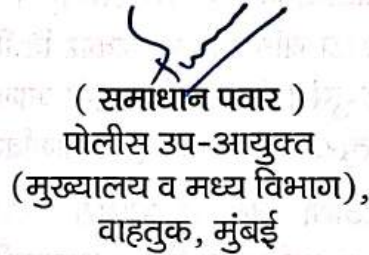 ( समाधान पवार )
पोलीस उप-आयुक्त
(मुख्यालय व मध्य विभाग),
वाहतुक, मुंबई